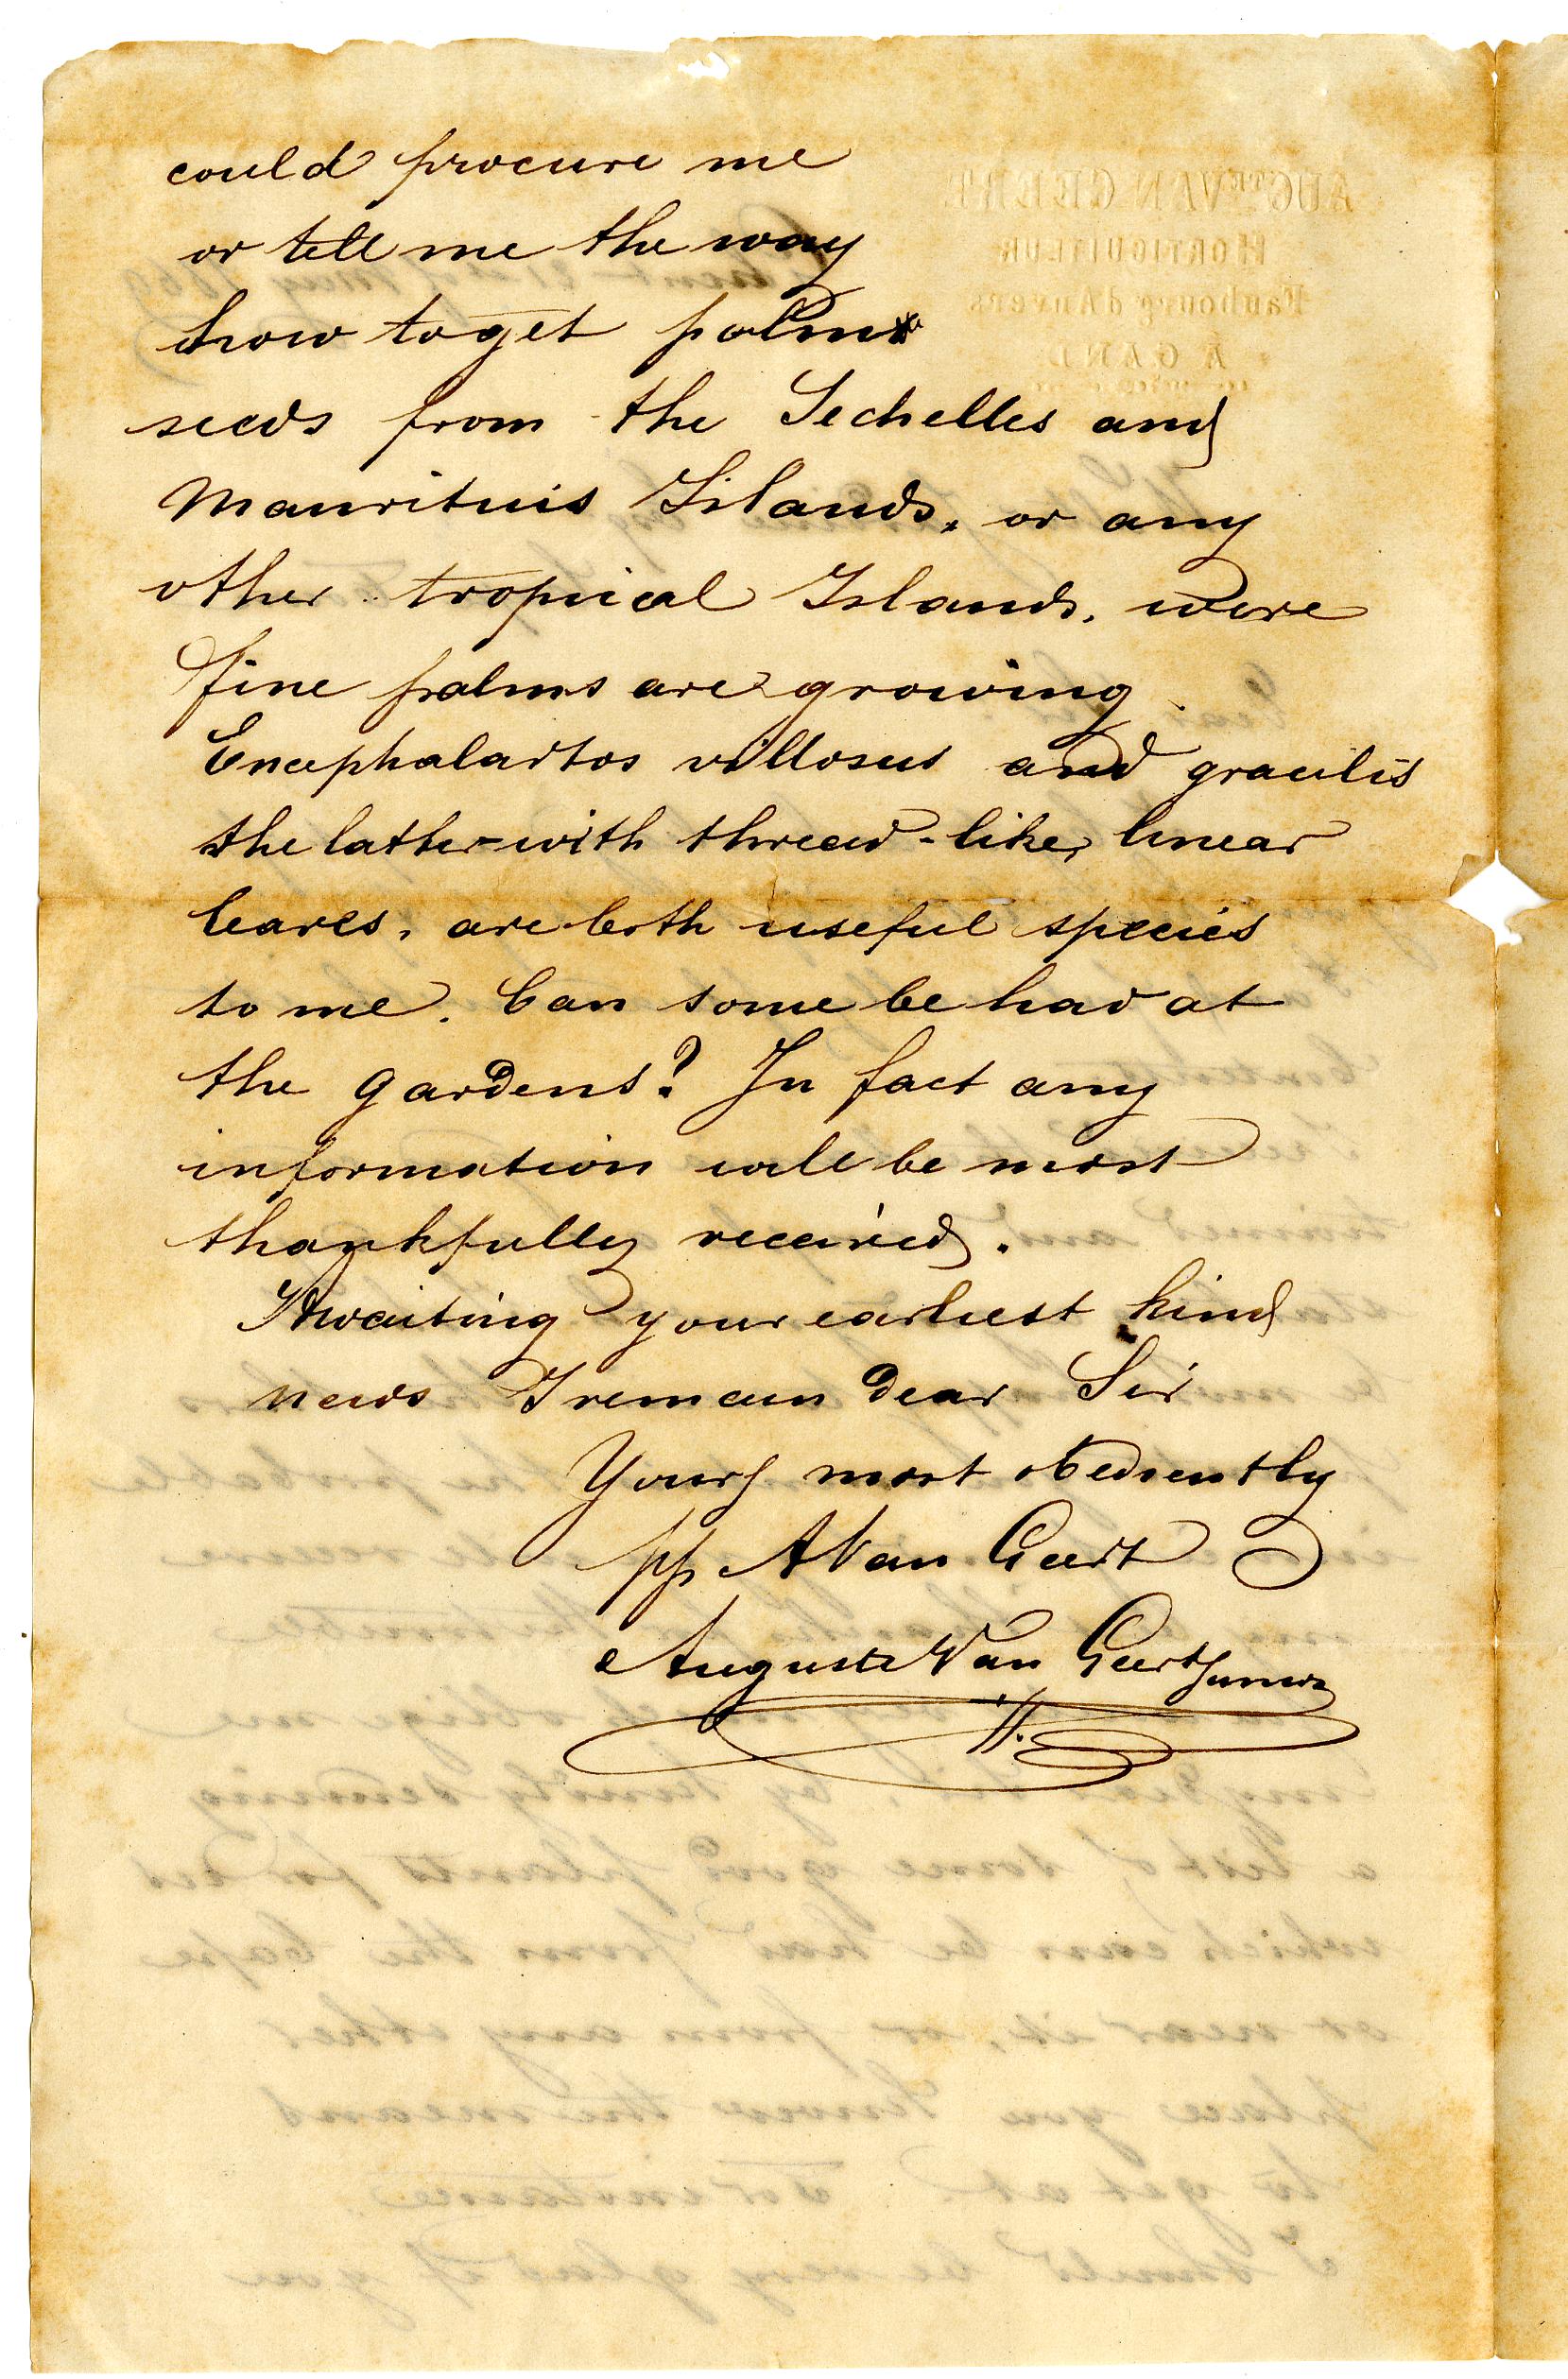 could procure me
or tell me the way
how to get palm
seeds from the Sechelles and
Mauritius Islands, or any
other tropical Islands, were
fine palms are growing.
Encephalartos villosus and gracilis
the lather with thread-like, linear
leaves, are both useful species
to me. Can some be had at
the gardens? In fact any
information will be most
thankfully received.
Awaiting your earliest kind
news I remain dear Sir
Yours most obediently
pp A Van Geert
Auguste Van Geert Junior
AUGTE VAN GEERT
HORTICULTEUR
Faubourg d'Anvers
A GAND